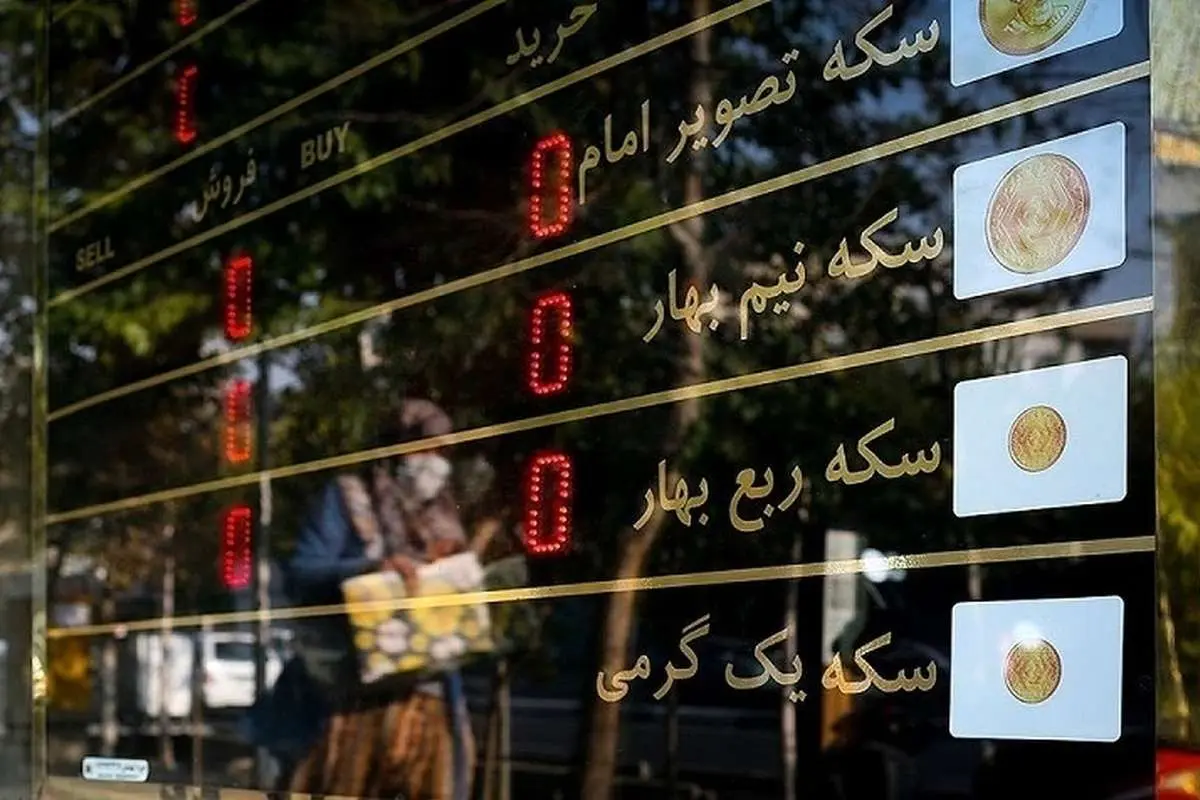 خرید
BUY
فروش
SELL
سکه تصویر امام 0
سکه نیم بهار 0 0
سکه ربع بهار 0 0
سکه یک گرمی 0